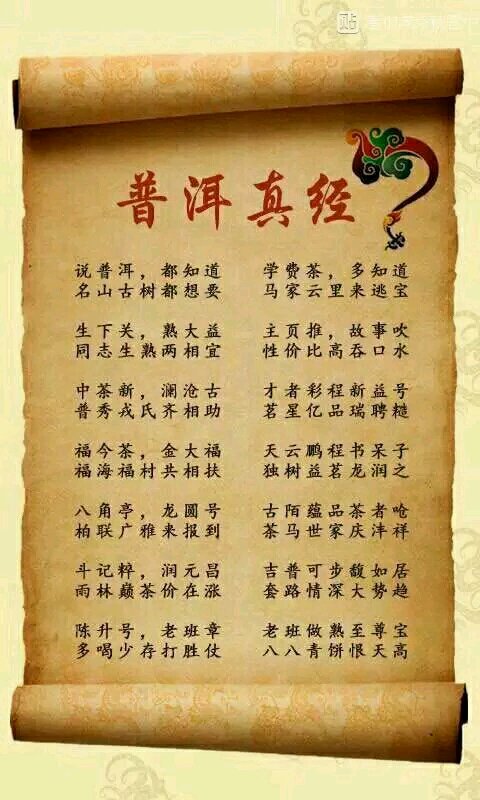 普洱真经
说普洱，都知道
名山古树都想要
学费茶，多知道
马家云里来逃宝
生下关，熟大益
同志生熟两相宜
主页推，故事吹
性价比高吞口水
中茶新，澜沧古
普秀戎氏齐相助
才者彩程新益号
茗星亿品瑞聘糙
福今茶，金大福
福海福村共相扶
天云鹏程书呆子
独树益茗龙润之
八角亭，龙圆号
柏联广雅来报到
古陌蕴品茶者呛
茶马世家庆沣祥
斗记粹，润元昌
雨林巅茶价在涨
吉普可步馥如居
套路情深大势趋
陈升号，老班章
多喝少存打胜仗
老班做熟至尊宝
八八青饼恨天高